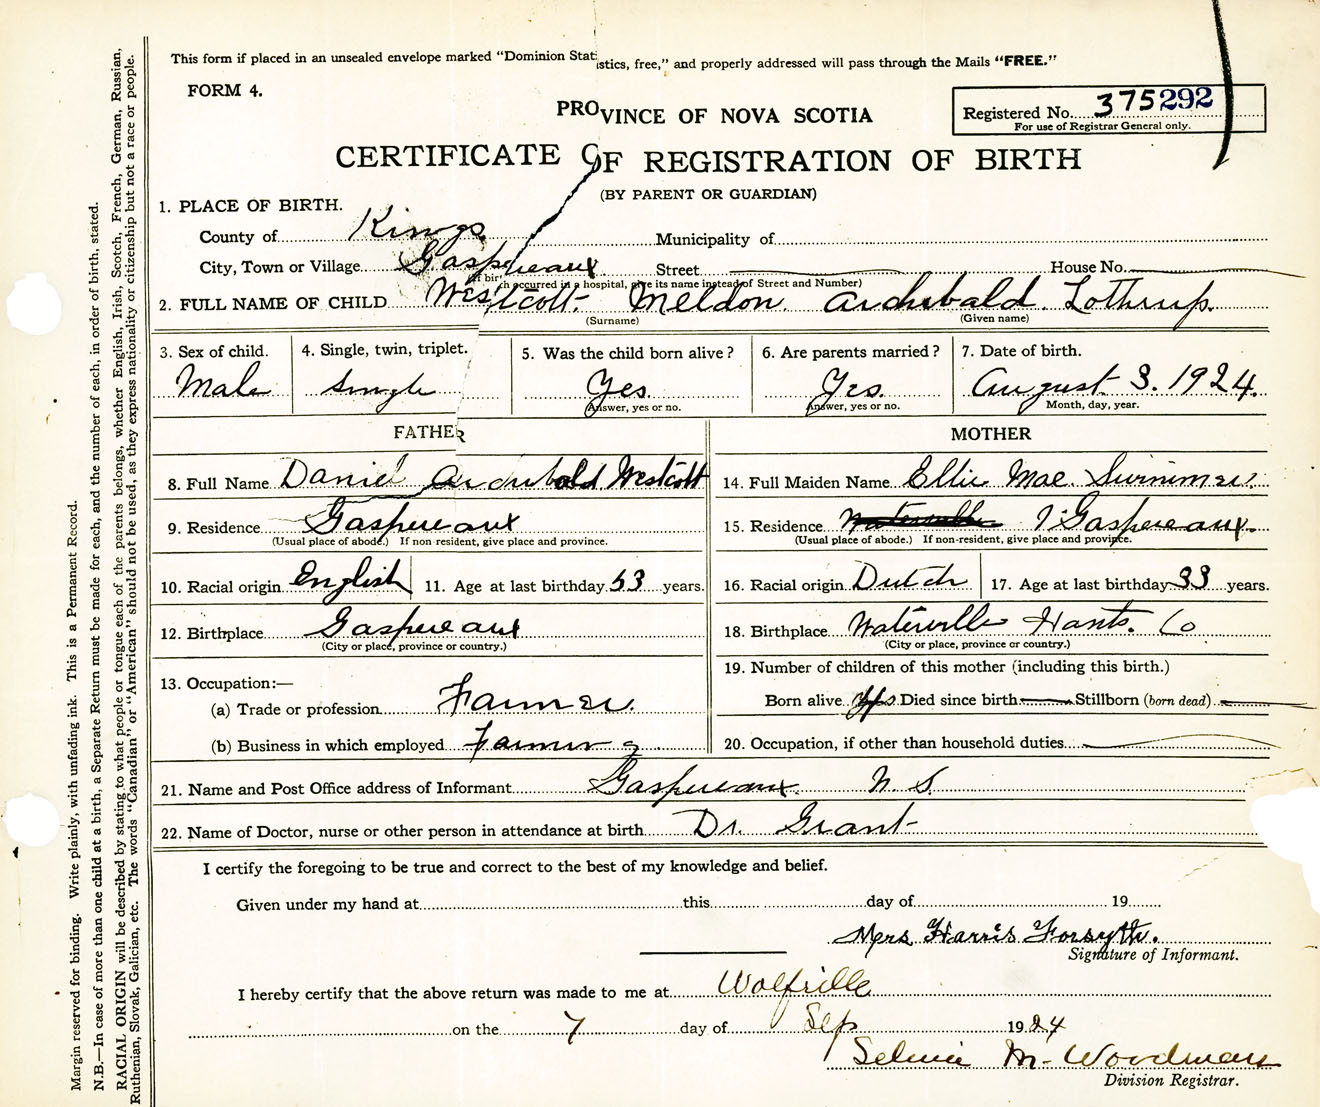 This form if placed in an unsealed envelope marked "Dominion Statistics, free," and properly addressed will pass through the Mails "FREE."
FORM 4.
PROVINCE OF NOVA SCOTIA
Registered No. 375292
For use of Registrar General only.
CERTIFICATE OF REGISTRATION OF BIRTH
(BY PARENT OR GUARDIAN)
1. PLACE OF BIRTH.
County of Kings Municipality of
City, Town or Village Gaspereaux Street House No.
(If birth occurred in a hospital, give its name instead of Street and Number)
2. FULL NAME OF CHILD Westcott Meldon Archibald Lothrup.
(Surname) (Given name)
3. Sex of child. 4. Single, twin, triplet. 5. Was the child born alive? 6. Are parents married? 7. Date of birth.
Male Single Yes. Yes. August 3. 1924.
Answer, yes or no. Answer, yes or no. Month, day, year.
FATHER MOTHER
8. Full Name Daniel Archibald Westcott 14. Full Maiden Name Ellie Mae Swinimer
9. Residence Gaspereaux 15. Residence Waterville Gaspereaux.
(Usual place of abode.) If non-resident, give place and province. (Usual place of abode.) If non-resident, give place and province.
10. Racial origin English 11. Age at last birthday 53 years. 16. Racial origin Dutch 17. Age at last birthday 33 years.
12. Birthplace Gaspereaux 18. Birthplace Waterville Hants. Co
(City or place, province or country.) (City or place, province or country.)
19. Number of children of this mother (including this birth.)
13. Occupation:—
(a) Trade or profession Farmer. Born alive Died since birth Stillborn (born dead)
(b) Business in which employed Farming 20. Occupation, if other than household duties
21. Name and Post Office address of Informant Gaspereaux. N. S.
22. Name of Doctor, nurse or other person in attendance at birth Dr. Grant
I certify the foregoing to be true and correct to the best of my knowledge and belief.
Given under my hand at this day of 19
Mrs Harris Forsyth.
Signature of Informant.
I hereby certify that the above return was made to me at Wolfville
on the 7 day of Sep 1924
Selmie M. Woodman
Division Registrar.
Margin reserved for binding. Write plainly, with unfading ink. This is a Permanent Record.
N.B.—In case of more than one child at a birth, a Separate Return must be made for each, and the number of each, in order of birth, stated.
RACIAL ORIGIN will be described by stating to what people or tongue each of the parents belongs, whether English, Irish, Scotch, French, German, Russian,
Ruthenian, Slovak, Galician, etc. The words "Canadian" or "American" should not be used, as they express nationality or citizenship but not a race or people.